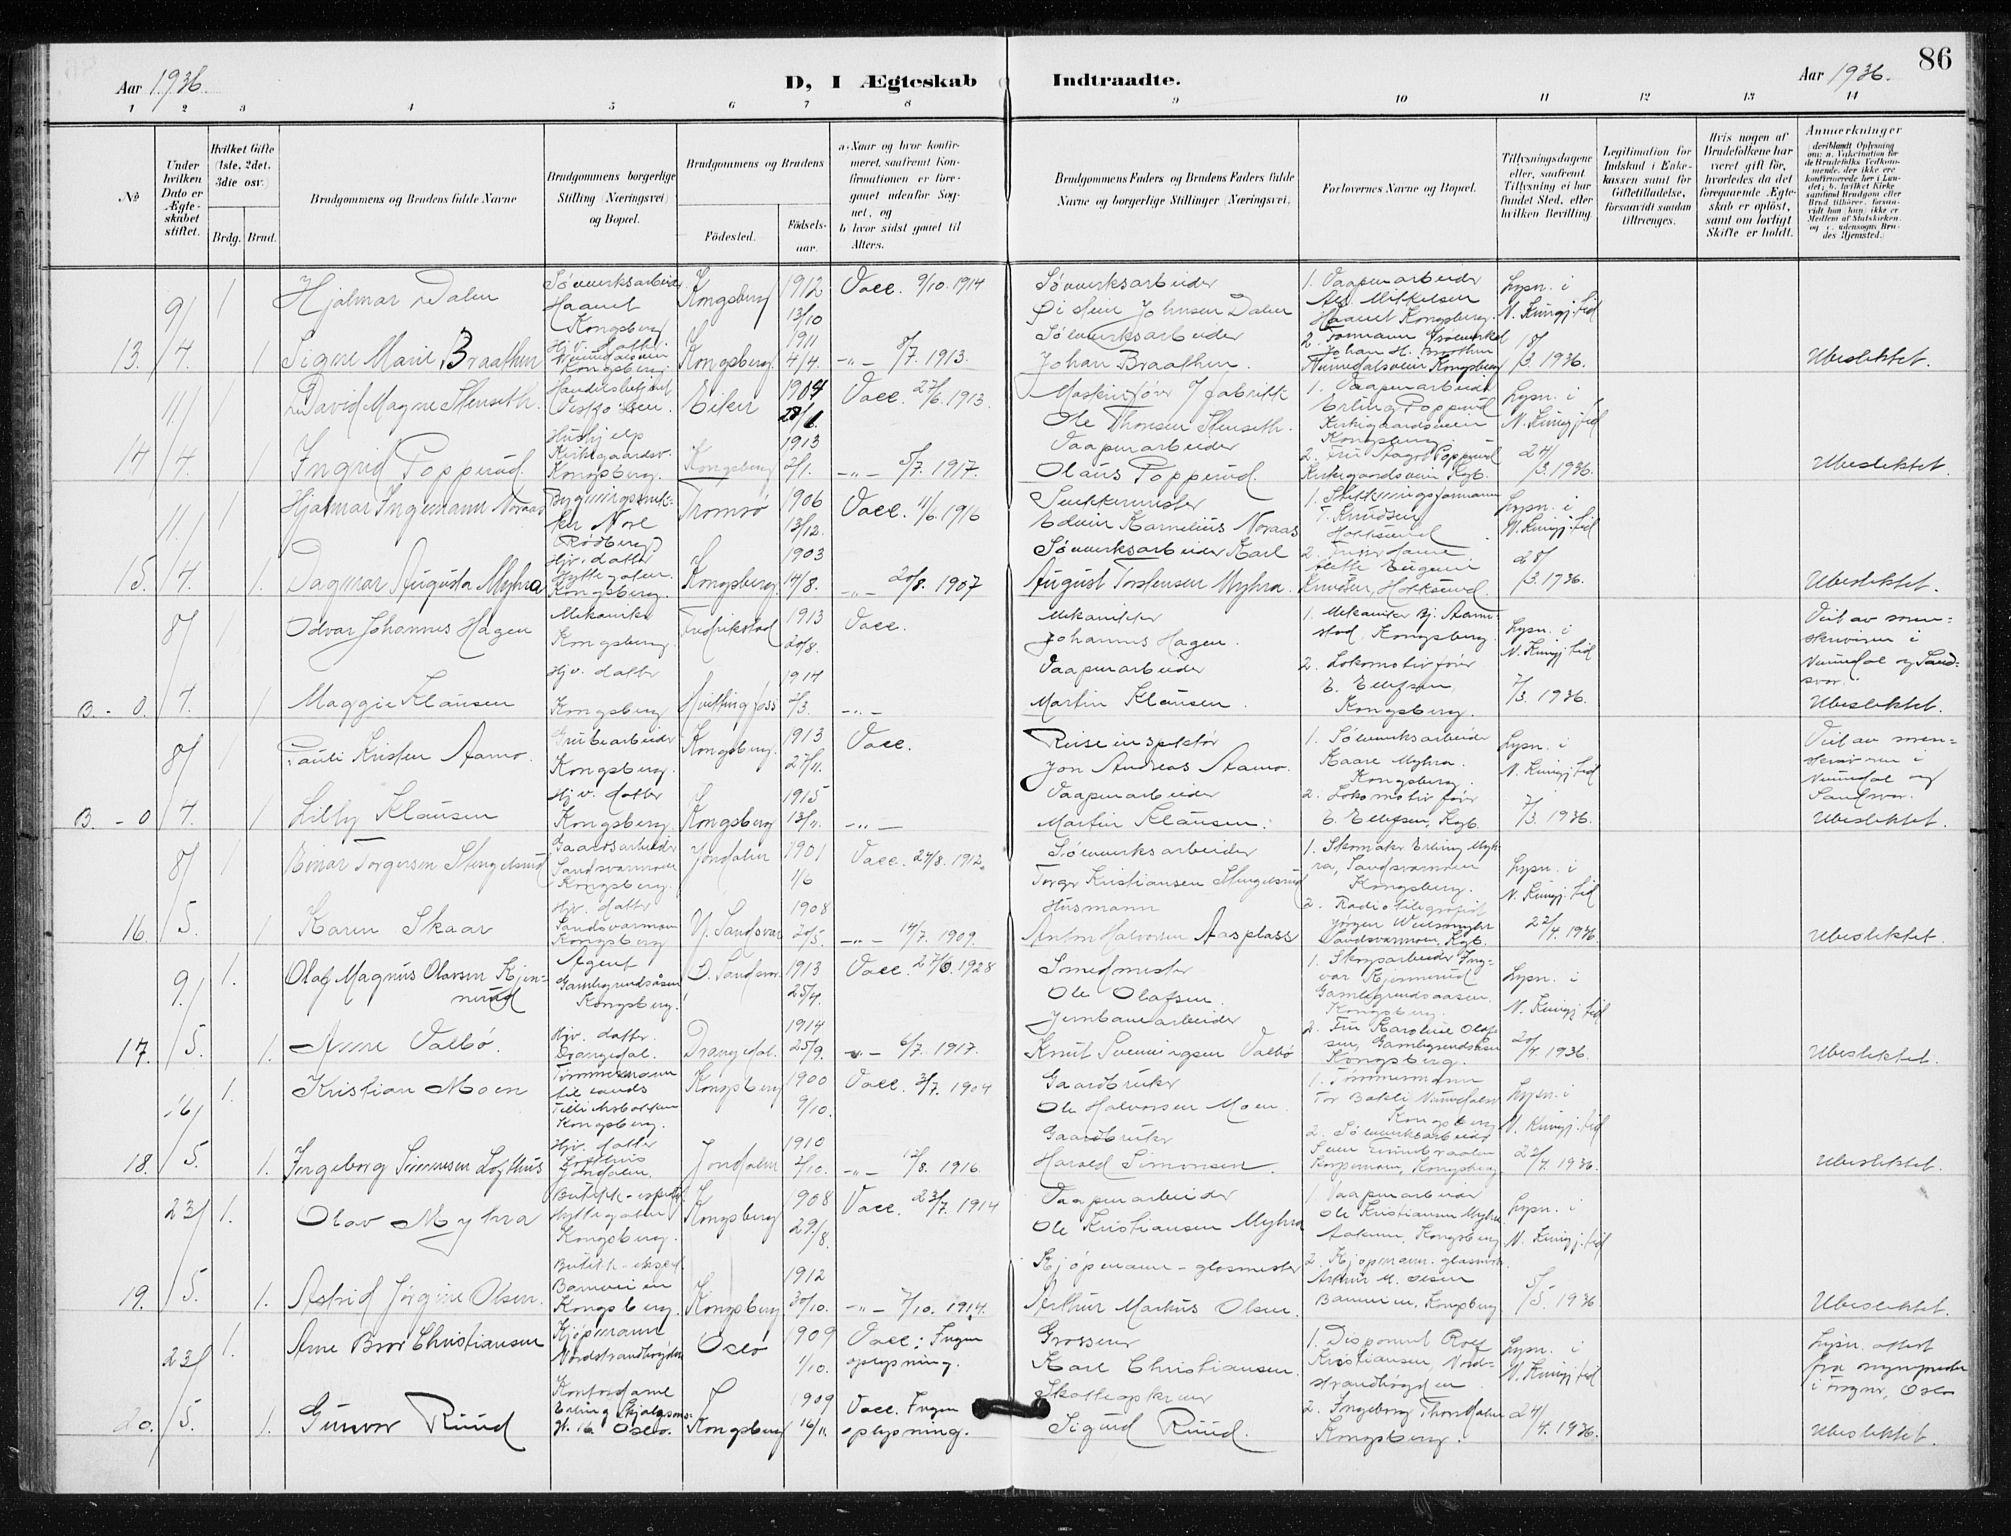 86
Aar 1936.
D, I Ægteskab
Indtraadte.
Aar 1936.
1 2 3 4 5 6 7 8 9 10 11 12 13 14
No
Under hvilken Dato er Ægteskabet stiftet.
Hvilket Gifte (1ste, 2det, 3die osv.)
Brdg. Brud.
Brudgommens og Brudens fulde Navne
Brudgommens borgerlige Stilling (Næringsvei) og Bopæl.
Brudgommens og Brudens
Fødested. Fødselsaar.
a: Naar og hvor konfirmeret, saafremt Konfirmationen er foregaaet udenfor Sognet, og
b hvor sidst gaaet til Alters.
Brudgommens Faders og Brudens Faders fulde Navne og borgerlige Stillinger (Næringsvei).
Forlovernes Navne og Bopæl.
Tillysningsdagene eller, saafremt Tillysning ei har fundet Sted, efter hvilken Bevilling.
Legitimation for Indskud i Enkekassen samt for Giftetilladelse, forsaavidt saadan tiltrænges.
Hvis nogen af Brudefolkene har været gift før, hvorledes da det foregaaende Ægteskab er opløst, samt om lovligt Skifte er holdt.
Anmærkninger
9/ 1 Hjalmar Dalen Sølvverksarbeider Haavet Kongsberg Kongsberg 1912 13/10 Vacc. 9/10. 1914 Sølvverksarbeider Øistein Johnsen Dalen 1. Vaapenarbeider Alf Mikkelsen Haavet Kongsberg. Lysn. i N. Kungj. tid
13. 4. 1 Signe Marie Braathen Hjv. datter Numedalsveien Kongsberg Kongsberg. 1911 4/4. -"- 8/7. 1913. Sølvverksarbeider Johan Braathen. 2. Formann Sølvverket Johan H. Braathen Numedalsveien Kongsberg 18/3. 1936. Ubeslektet.
11/ 1 David Magne Stenseth. Handelsbetjent Vestfossen. Eiker 1904 28/1. Vacc. 27/6. 1913. Maskinfører / fabrikk Ole Thorsen Stenseth. 1. Vaapenarbeider Erling Popperud Kirkegaardsveien Kongsberg. Lysn. i N. Kungj. tid
14 4. 1 Ingrid Popperud. Hushjelp Kirkegaardsv. Kongsberg. Kongsberg 1913 2/1. -"- 5/7. 1917. Vaapenarbeider Olaus Popperud. 2. Fru Aagot Popperud Kirkegaardsveien Kgb. 24/3. 1936. Ubeslektet.
11/ 1 Hjalmar Ingemann Noraas Bygningssnekker Nore (Rødberg) Tromsø 1906 13/12. Vacc. 11/6. 1916 Snekkermester Edvin Kornelius Noraas 1. T. Knudsen Hokksund. Lysn. i N. Kungj. tid
15. 4. 1. Dagmar Augusta Myhra Hjv. datter Hyttegaten Kongsberg. Kongsberg. 1903 14/8. -"- 20/8. 1907 Sølvverksarbeider Karl August Torstensen Myhra. 2. Knudsen, Hokksund. 28/3. 1936. Ubeslektet.
8/ 1 Odvar Johannes Hagen Mekaniker Kongsberg. Fredrikstad 1913 20/8. Vacc. Mekaniker Johannes Hagen. 1. Mekaniker Bj. Kongsberg. Lysn. i N. Kungj. tid Viet av sorenskriveren i Numedal og Sandsvær.
B. - 0. 4. 1 Maggie Klausen Hjv. datter Kongsberg Hvittingfoss 1914 2/3. -"- Vaapenarbeider Martin Klausen 2. Lokomotivfører E. Ellefsen Kongsberg. 7/3. 1936. Ubeslektet.
8/ 1 Pauli Kristen Aamo. Grubearbeider Kongsberg. Kongsberg. 1913 27/11. Vacc. Reiseinspektør Jon Andreas Aamo. 1. Sølvverksarbeider Kaare Myhra. Kongsberg. Lysn. i N. Kungj. tid Viet av sorenskriveren i Numedal og Sandsvær.
B. - 0 4. 1 Lilly Klausen Hjv. datter Kongsberg. Kongsberg 1915 13/11. -"- Vaapenarbeider Martin Klausen. 2. Lokomotivfører E. Ellefsen, Kgb. 7/3. 1936. Ubeslektet.
8/ 1 Einar Torgersen Stengelsrud Gaardsarbeider Sandsværmoen Kongsberg. Jondalen 1901 1/6 Vacc. 24/8. 1912. Sølvverksarbeider Torger Kristiansen Stengelsrud 1. Skomaker Erling Myhra, Sandsværmoen Kongsberg. Lysn. i N. Kungj. tid
16. 5. 1. Karen Skaar Hjv. datter Sandsværmoen Kongsberg Y. Sandsvær 1908 20/5. -"- 14/7. 1909. Husmann Anton Halvorsen Aasplass 2. Radiotelegrafist Jørgen Sandsværmoen, Kgb. 22/4. 1936. Ubeslektet.
9/ 1. Olaf Magnus Olavsen Kjennerud Agent Gamlegrendsåsen Kongsberg. Ø. Sandsvær 1913 25/4. Vacc. 27/6. 1928 Smedmester Ole Olafsen. 1. Skogsarbeider Ingvar Kjennerud Gamlegrendsaasen. Kongsberg. Lysn. i N. Kungj. tid
17. 5. 1. Anne Valbø. Hjv. datter. Drangedal. Drangedal. 1914 25/9. -"- 6/7. 1917. Jernbanearbeider Knut Svenningsen Valbø 2. Fru Karoline Olafsen, Gamlegrendsåsen Kongsberg. 20/4. 1936. Ubeslektet.
16/ 1. Kristian Moen Tømmermann Kongsberg. Kongsberg 1900 9/10. Vacc. 2/7. 1904 Gaardbruker Ole Halvorsen Moen. 1. Tømmermann Tor Bakli Kongsberg Lysn. i N. Kungj. tid
18. 5. 1. Ingeborg Simonsen Lofthus Hjv. datter Lofthus Jondalen. Jondalen 1910 2/10. -"- 12/8. 1916. Gaardbruker Harald Simonsen 2. Sølvverksarbeider Kongsberg 22/4. 1936. Ubeslektet.
23/ 1. Olav Myhra Hyttegaten Kongsberg. Kongsberg 1908 29/8. Vacc. 23/7. 1914 Vaapenarbeider Ole Kristiansen Myhra 1. Vaapenarbeider Ole Kristiansen Myhra Kongsberg Lysn. i N. Kungj. tid
19. 5. 1. Astrid Jørgine Olsen. Butikk-eksped. Banveien Kongsberg. Kongsberg 1912 30/10. -"- 7/10. 1914. Kjøpmann - glasmester Arthur Markus Olsen. 2. Kjøpmann - glasmester Arthur M. Olsen Banveien, Kongsberg 5/5. 1936 Ubeslektet.
23/ 1. Arne Bror Christiansen Kjøpmann Nordstrandhøgda Oslo 1909 1/10. Vacc: Ingen oplysning. Grosserer Karl Christiansen. 1. Disponent Rolf Kristiansen, Nordstrandhøgden. Lysn. i N. Kungj. tid Lysn. attest fra sogneprest i Frogner, Oslo
20. 5. 1. Gunvor Ruud Kontordame Erling Skjalgsons gt. 16 Oslo. Kongsberg 1909 16/11 Vacc. Ingen oplysning. Skatteopkrever Sigurd Ruud. 2. Ingeborg Thondalen Kongsberg. 24/4. 1936. Ubeslektet.